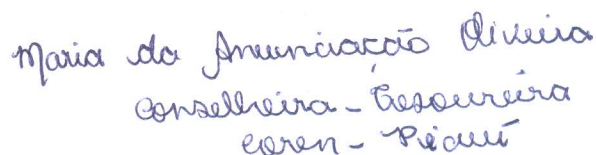 Maria da Anunciacão Oliveira
Conselheira - Tesoureira
Coren - Piauí